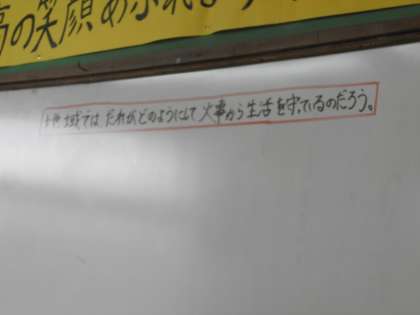 高の笑顔あふれる
地域では だれが、どのようにして 火事から 生活を守っているのだろう。